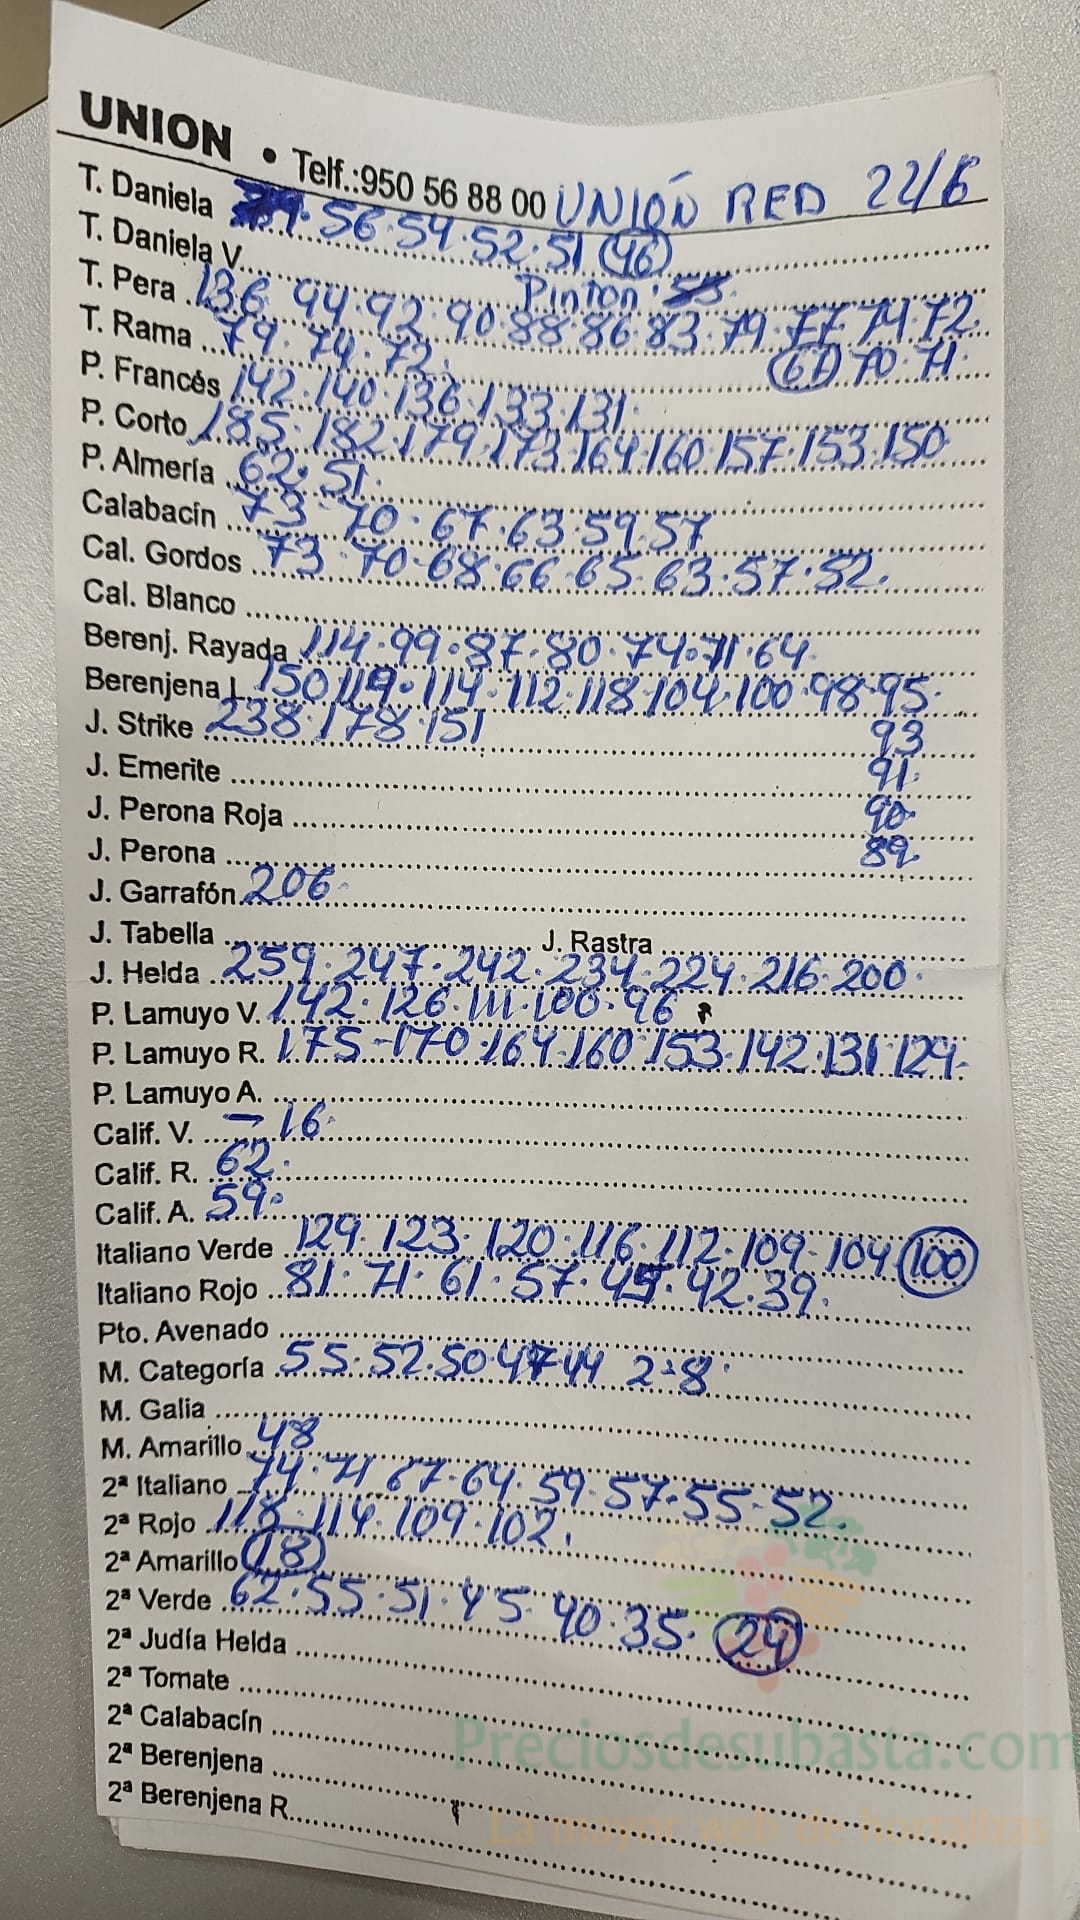 UNION • Telf.:950 56 88 00 UNIÓN RED 22/6
T. Daniela 56·54·52·51 (46)
T. Daniela V. Pinton
T. Pera 136·94·92·90·88·86·83·79·77·74·72
T. Rama 79·74·72. (61) 70·71·
P. Francés 142·140·136·133·131·
P. Corto 185·182·179·173·164·160·157·153·150
P. Almería 62·51·
Calabacín 73·70·67·63·59·57
Cal. Gordos 73·70·68·66·65·63·57·52.
Cal. Blanco
Berenj. Rayada 114·99·87·80·74·71·64·
Berenjena L. 150·119·114·112·118·104·100·98·95·
J. Strike 238·178·151 93
J. Emerite 91·
J. Perona Roja 90·
J. Perona 89·
J. Garrafón 206·
J. Tabella J. Rastra
J. Helda 259·247·242·234·224·216·200·
P. Lamuyo V. 142·126·111·100·96
P. Lamuyo R. 175-170·164·160·153·142·131·129·
P. Lamuyo A.
Calif. V. — 16·
Calif. R. 62·
Calif. A. 59·
Italiano Verde 129·123·120·116·112·109·104 (100)
Italiano Rojo 81·71·61·57·49·42·39·
Pto. Avenado
M. Categoría 55·52·50·47·44 2ª8·
M. Galia
M. Amarillo 48
2ª Italiano 74·71·67·64·59·57·55·52.
2ª Rojo 118·114·109·102.
2ª Amarillo (18)
2ª Verde 62·55·51·45·40·35· (24)
2ª Judía Helda
2ª Tomate
2ª Calabacín
Preciosdesubasta.com
2ª Berenjena
2ª Berenjena R.
La mayor web de hortalizas